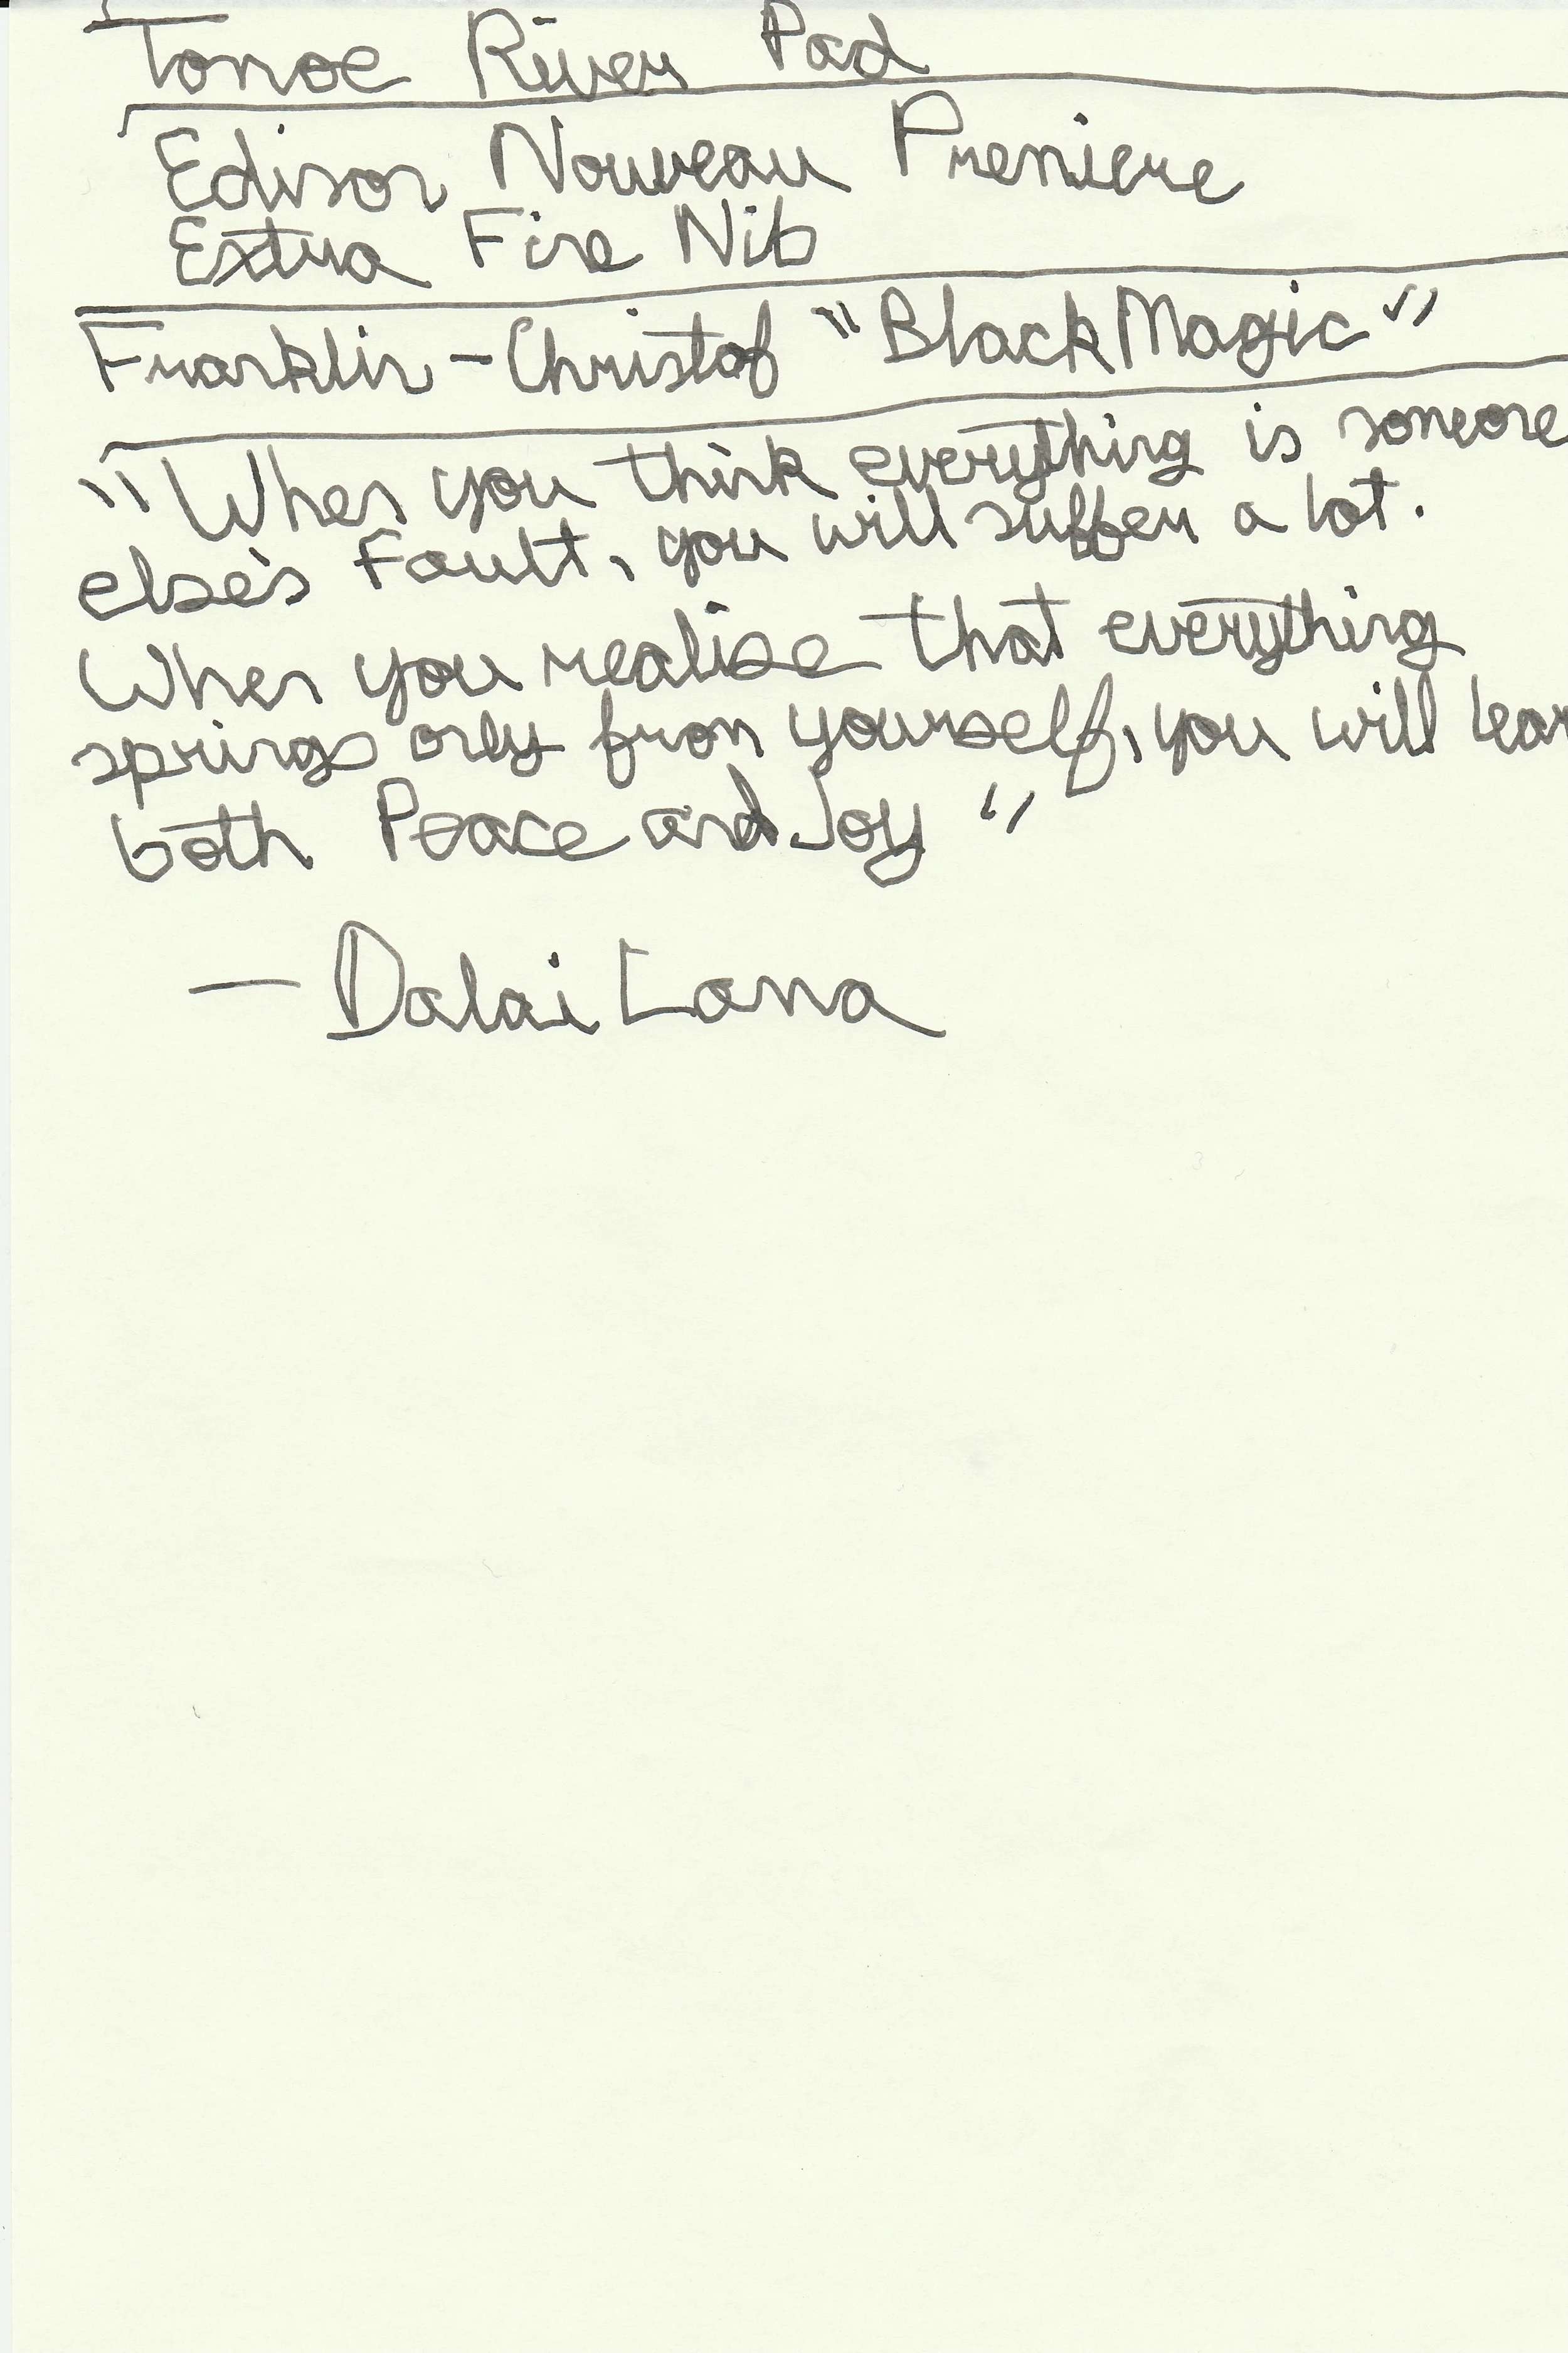 Tomoe River Pad
Edison Nouveau Premiere
Extra Fine Nib
Franklin-Christof "Black Magic"
"When you think everything is someone
else's Fault, you will suffer a lot.
When you realise that everything
springs only from yourself, you will lear
both Peace and Joy"
— Dalai Lama